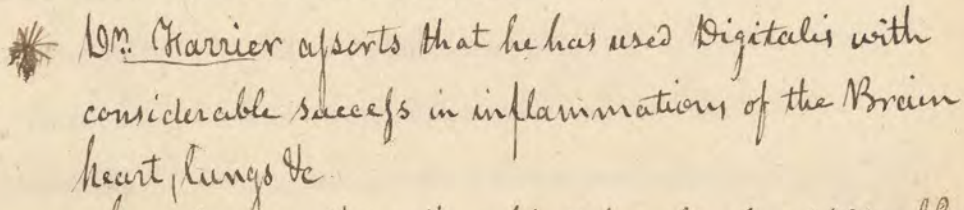 * Dr. Harrier aſserts that he has used Digitalis with
considerable succeſs in inflammations of the Brain
heart, lungs &c